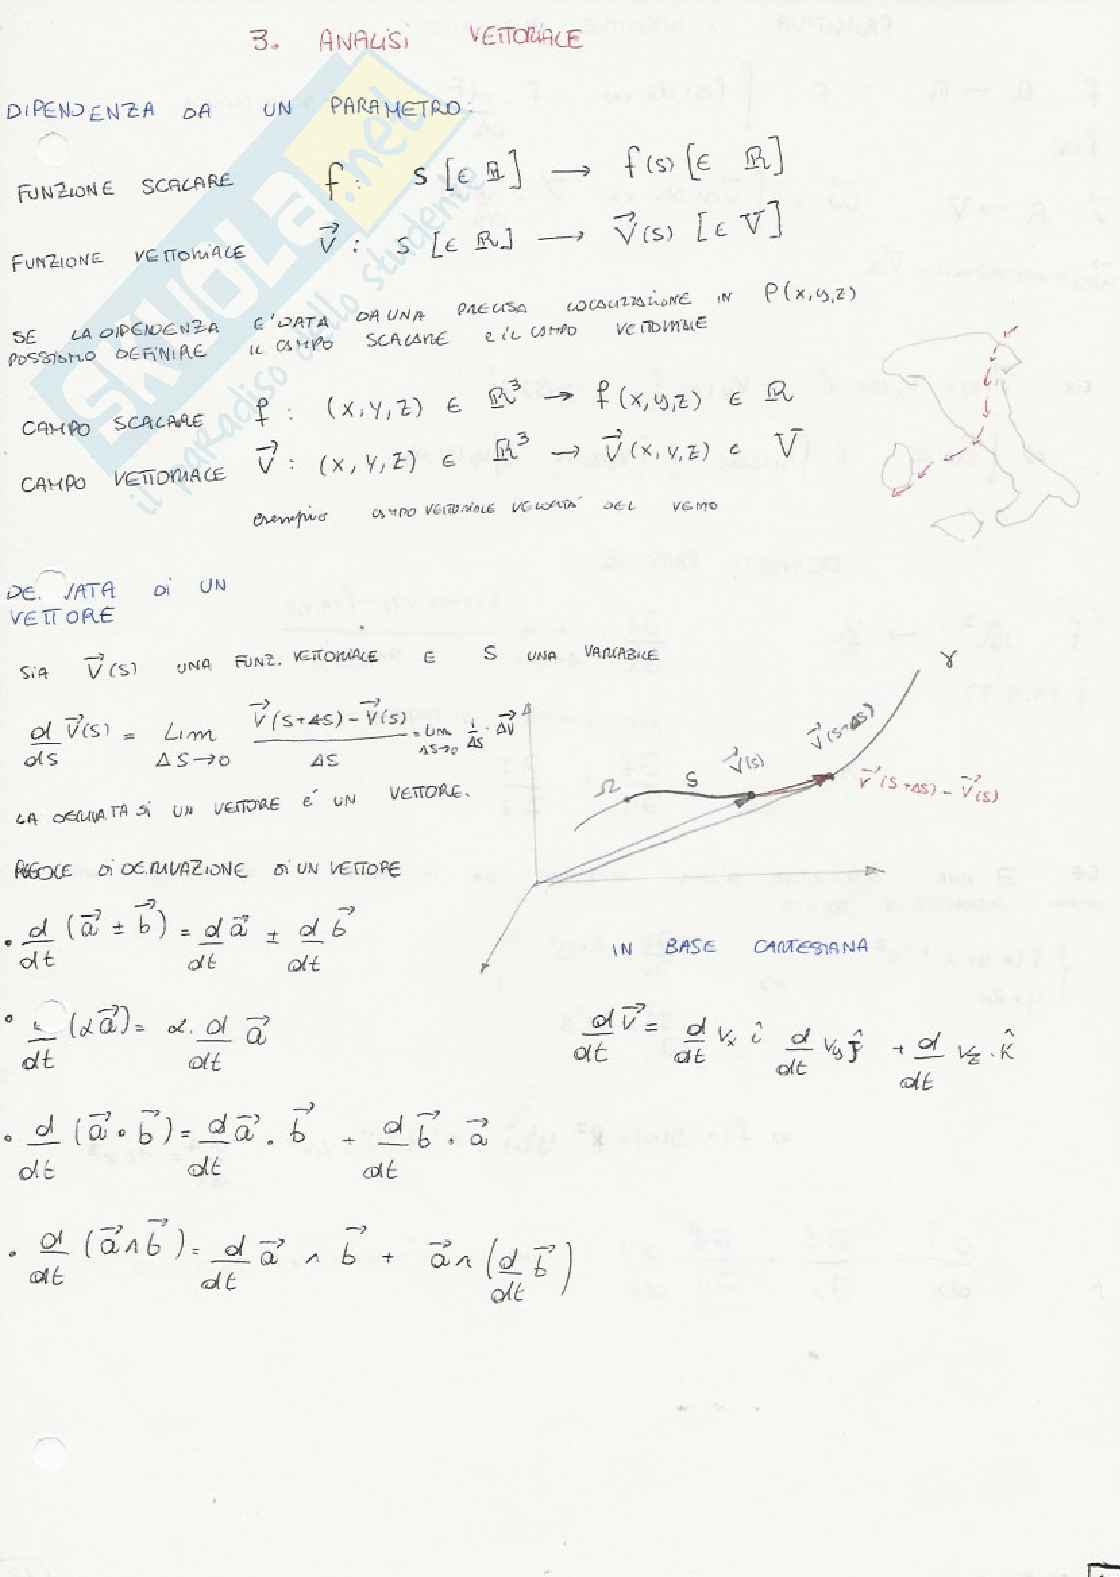 3. ANALISI VETTORIALE
DIPENDENZA DA UN PARAMETRO:
FUNZIONE SCALARE f: s [∈ ℝ] → f(s) [∈ ℝ]
FUNZIONE VETTORIALE V⃗: s [∈ ℝ] → V⃗(s) [∈ V]
SE LA DIPENDENZA E' DATA DA UNA PRECISA LOCALIZZAZIONE IN P(x,y,z)
POSSIAMO DEFINIRE IL CAMPO SCALARE E IL CAMPO VETTORIALE
CAMPO SCALARE f: (x, y, z) ∈ ℝ³ → f(x,y,z) ∈ ℝ
CAMPO VETTORIALE V⃗: (x, y, z) ∈ ℝ³ → V⃗(x,y,z) ∈ V
esempio CAMPO VETTORIALE VELOCITÀ DEL VENTO
SKUOLA.net
il paradiso dello studente
DE VATA Di UN
VETTORE
SIA V⃗(S) UNA FUNZ. VETTORIALE E S UNA VARIABILE
d/ds V⃗(s) = Lim ΔS→0 (V⃗(S+ΔS) - V⃗(S))/ΔS = Lim ΔS→0 1/ΔS · ΔV⃗
LA DERIVATA DI UN VETTORE É UN VETTORE.
γ
V⃗(S+ΔS)
V⃗(S)
Ω S
V⃗(S+ΔS) - V⃗(S)
REGOLE Di DERIVAZIONE Di UN VETTORE
• d/dt (a⃗ ± b⃗) = d/dt a⃗ ± d/dt b⃗
IN BASE CARTESIANA
• /dt (α a⃗) = α · d/dt a⃗
d/dt V⃗ = d/dt Vx î d/dt Vy ĵ + d/dt Vz · k̂
• d/dt (a⃗ • b⃗) = d/dt a⃗ · b⃗ + d/dt b⃗ · a⃗
• d/dt (a⃗ ∧ b⃗) = d/dt a⃗ ∧ b⃗ + a⃗ ∧ (d/dt b⃗)